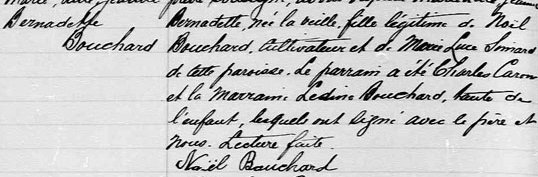 Bernadette Bernadette, née la veille, fille légitime de Noël
Bouchard Bouchard, cultivateur et de Marie Luce Simard
de cette paroisse. Le parrain a été Charles Caron
et la Marraine Bouchard, tante de
l'enfant, lesquels ont signé avec le père et
nous. Lecture faite.
Noël Bouchard